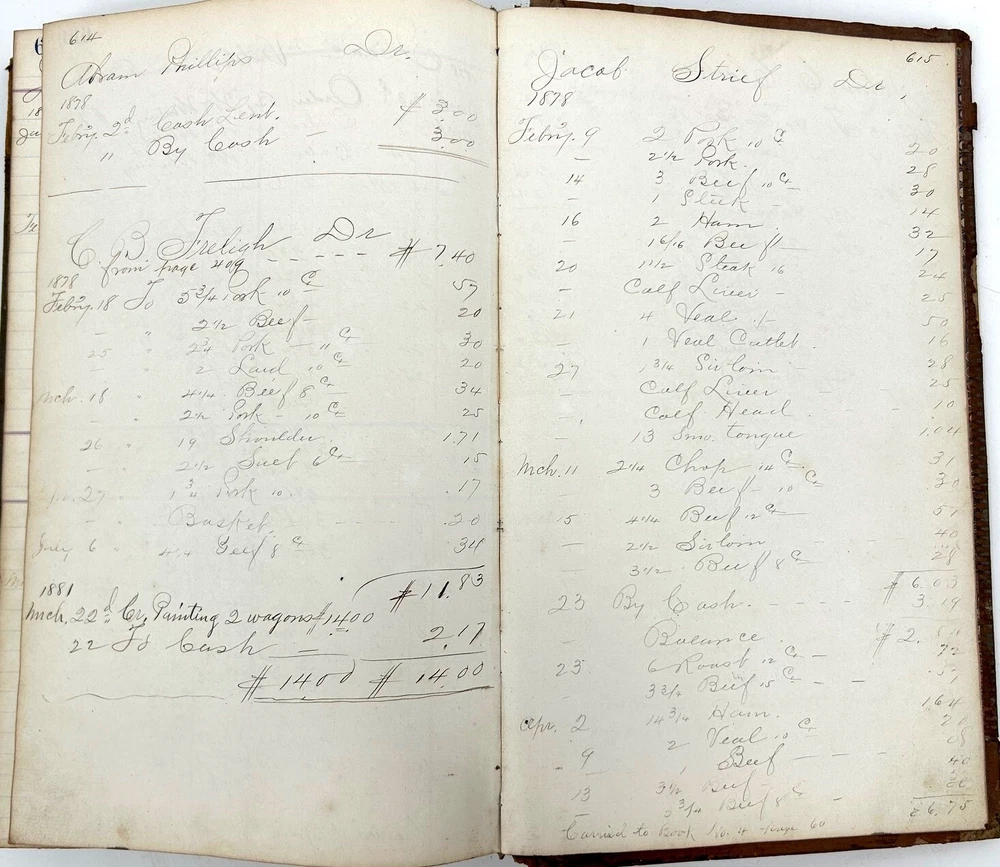 614
Abram Phillips Dr.
1878
Febry. 2d Cash Lent. $ 3.00
" By Cash — 3.00
C. B. Freligh Dr
from page 409 - - - - - $ 7.40
1878
Febry. 18 To 5 3/4 Pork 10 c 57
— " 2 1/2 Beef — 20
25 " 2 3/4 Pork — 11 c 30
— " 2 Lard 10 c 20
Mch. 18 " 4 1/4 Beef 8 c 34
— " 2 1/2 Pork — 10 c 25
26 " 19 Shoulder. 1.71
— 2 1/2 Suet 6 c 15
27 " 1 3/4 Pork 10. .17
— " Basket - - - - .20
July 6 " 4 1/4 Beef 8 c 34
$ 11.83
1881
Mch. 22d Cr. Painting 2 wagons $14.00
22 To Cash — 2.17
$ 14.00 $ 14.00
615
Jacob Strief Dr.
1878
Febry. 9 2 Pork 10 c 20
— 2 1/2 Pork. 28
14 3 Beef 10 c 30
— 1 Steak — 14
16 2 Ham 32
— 16/16 Beef — 17
20 1 1/2 Steak 16 24
— Calf Liver — 25
21 4 Veal 50
— 1 Veal Cutlet. 16
27 1 3/4 Sirloin — 28
— Calf Liver 25
— Calf Head 10
— 13 Smo. tongue 1.04
Mch. 11 2 1/4 Chop 14 c 31
— 3 Beef — 10 c 30
15 4 3/4 Beef 12 c 57
— 2 1/2 Sirloin — 40
— 3 1/2 Beef 8 c 28
$ 6.03
23 By Cash. — — 3 19
— Balance $ 2.
23 6 Roast 12 c — 72
— 3 3/4 Beef 15 c —
Apr. 2 14 3/4 Ham. 1.64
— 2 Veal 10 c 20
9 1 Beef — 08
13 3 1/2 Beef — 40
3 3/4 Beef 8 c
$ 6.75
Carried to Book No. 4 page 60